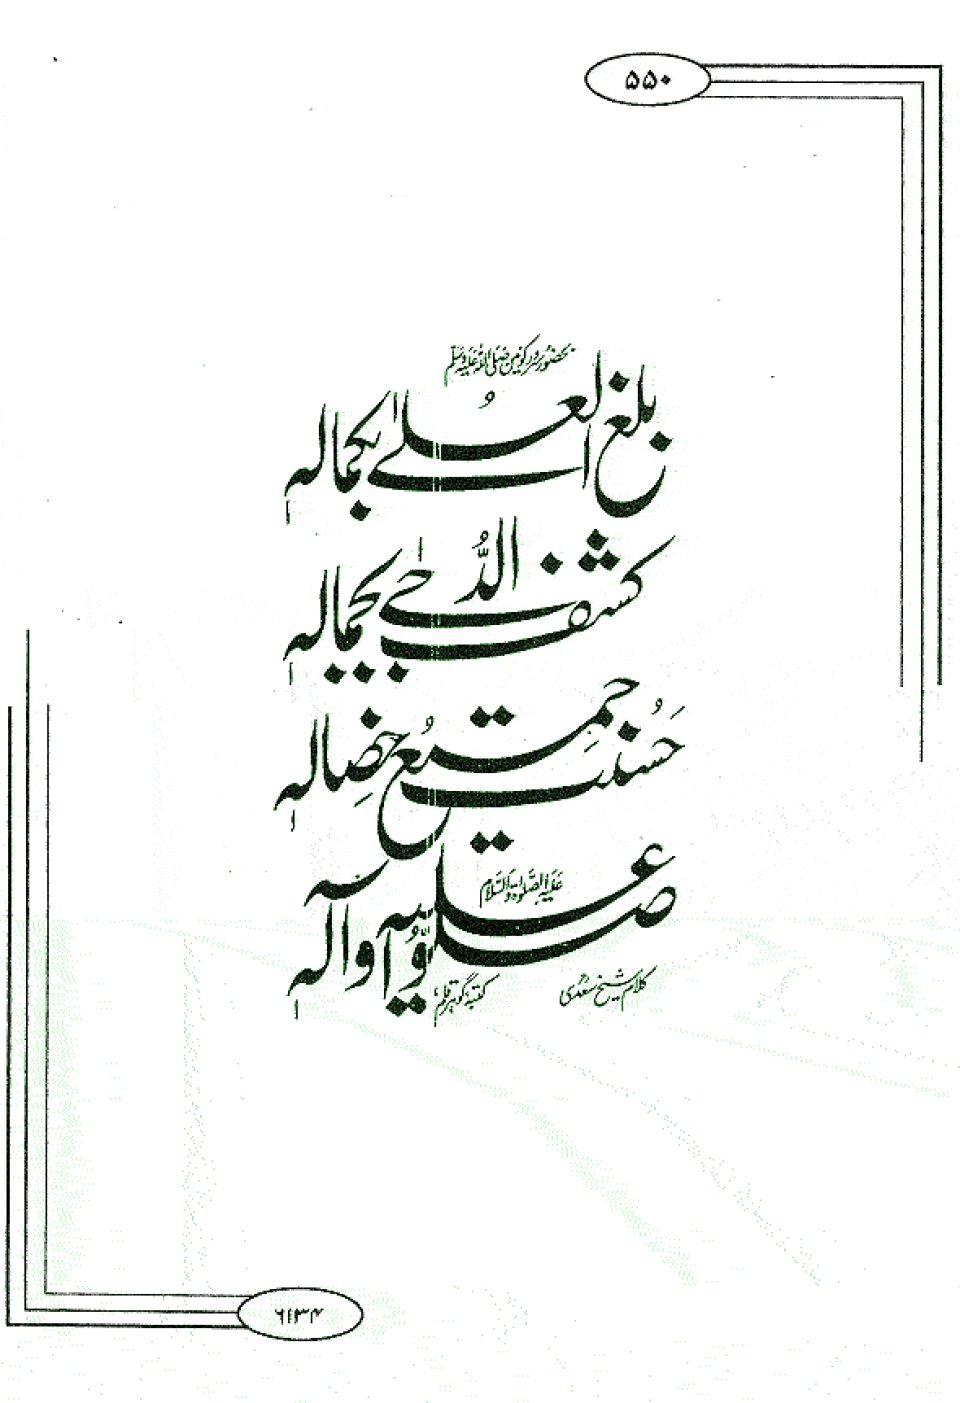 ۵۵۰
بحضور سرور کونین صلی اللہ علیہ وسلم
بلغ العُلےٰ بکمالہٖ
کشف الدُّجےٰ بجمالہٖ
حَسُنت جمِیعُ خِصالہٖ
علیہ الصلوٰۃ والسلام
صلّوا علیہ وآلہٖ
کلام شیخ سعدیؒ
کتبہ گوہر قلم
۶۱۳۴